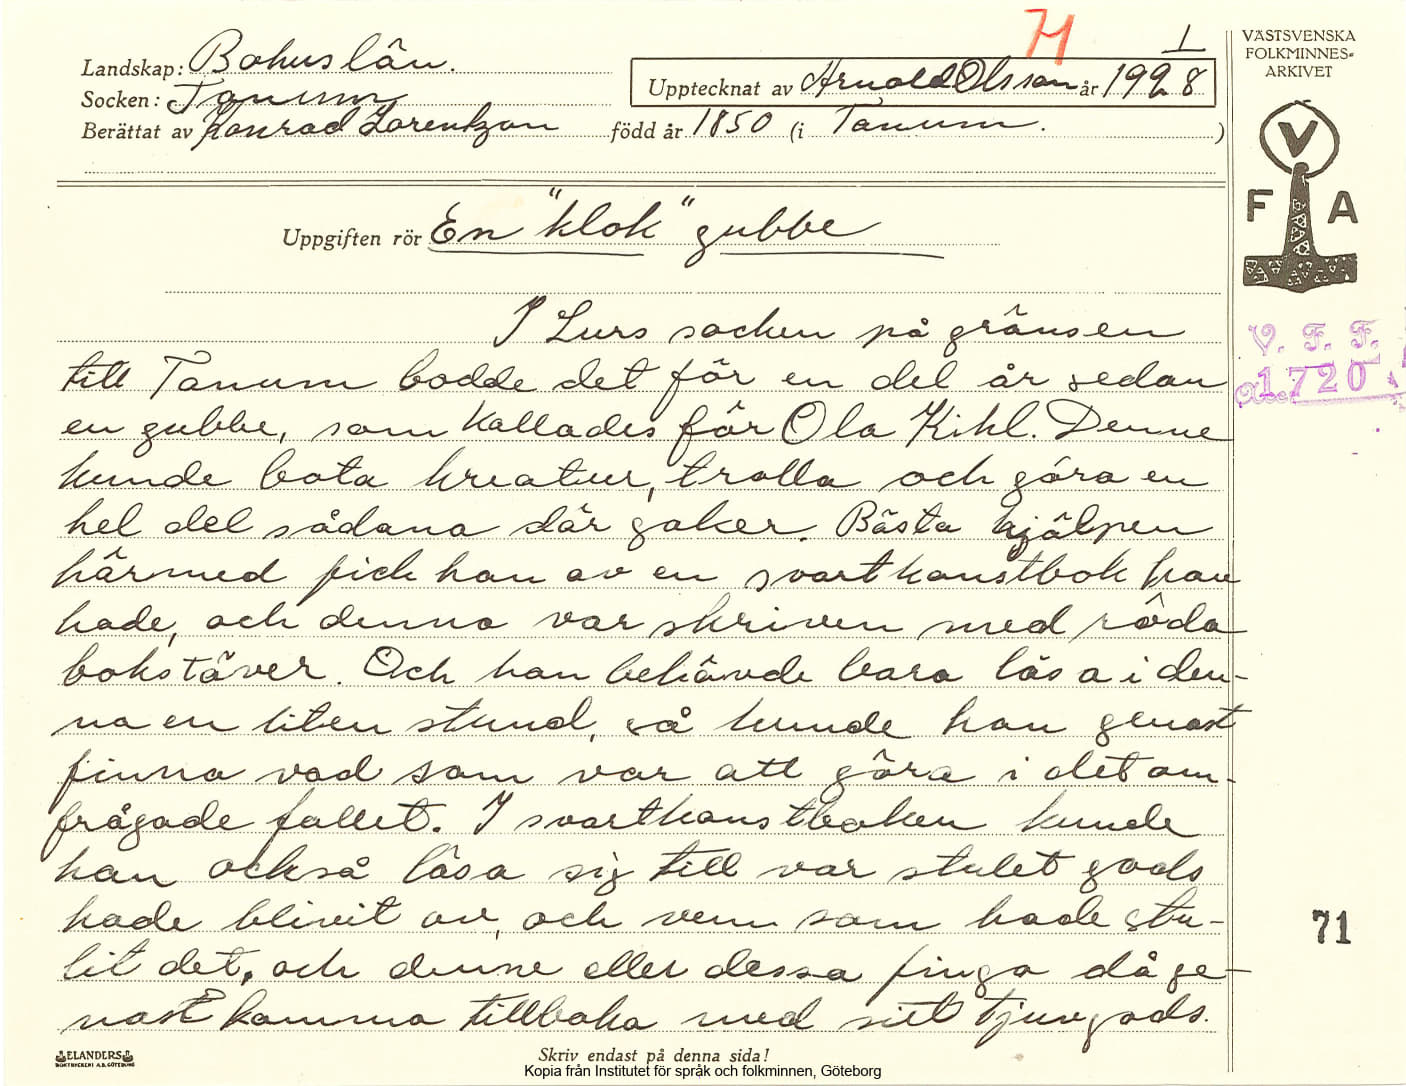 H
1
Landskap: Bohuslän.
Socken: Tanum
Upptecknat av Arnold Olsson år 1928
Berättat av Konrad Lorentzon född år 1850 (i Tanum.)
VÄSTSVENSKA
FOLKMINNES-
ARKIVET
V
F A
Uppgiften rör En "klok" gubbe
V. F. F.
1720
I Lurs socken på gränsen
till Tanum bodde det för en del år sedan
en gubbe, som kallades för Ola Kihl. Denne
kunde bota kreatur, trolla och göra en
hel del sådana där saker. Bästa hjälpen
härmed fick han av en svartkonstbok han
hade, och denna var skriven med röda
bokstäver. Och han behövde bara läsa i den-
na en liten stund, så kunde han genast
finna vad som var att göra i det om-
frågade fallet. I svartkonstboken kunde
han också läsa sig till var stulet gods
hade blivit av, och vem som hade stu-
lit det, och denne eller dessa finga då ge-
nast komma tillbaka med sitt tjuvgods.
71
ELANDERS
BOKTRYCKERI A.B. GÖTEBORG
Skriv endast på denna sida!
Kopia från Institutet för språk och folkminnen, Göteborg